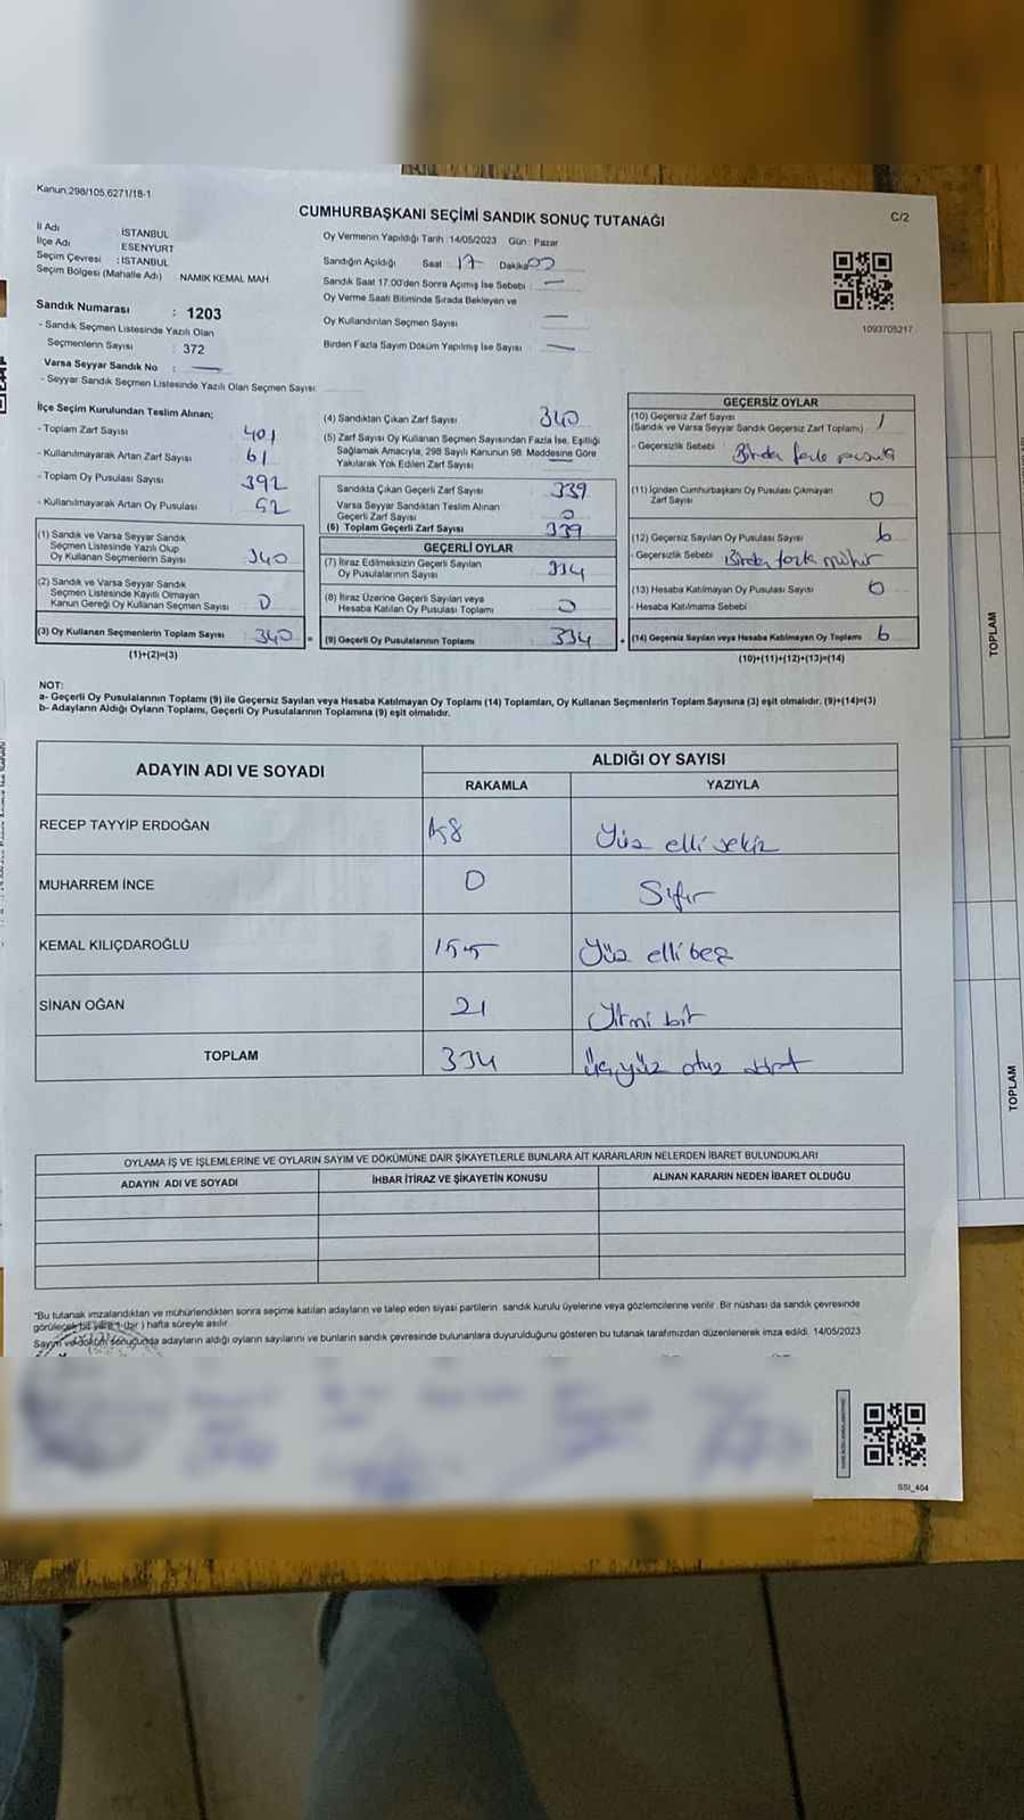 Kanun:298/105,6271/18-1
C/2
CUMHURBAŞKANI SEÇİMİ SANDIK SONUÇ TUTANAĞI
İl Adı : İSTANBUL
İlçe Adı : ESENYURT
Seçim Çevresi : İSTANBUL
Seçim Bölgesi (Mahalle Adı) : NAMIK KEMAL MAH.
Sandık Numarası : 1203
- Sandık Seçmen Listesinde Yazılı Olan
Seçmenlerin Sayısı : 372
Varsa Seyyar Sandık No : —
- Seyyar Sandık Seçmen Listesinde Yazılı Olan Seçmen Sayısı:
Oy Vermenin Yapıldığı Tarih :14/05/2023 Gün : Pazar
Sandığın Açıldığı Saat 17 Dakika 00
Sandık Saat 17:00'den Sonra Açımış İse Sebebi : —
Oy Verme Saati Bitiminde Sırada Bekleyen ve
Oy Kullandırılan Seçmen Sayısı —
Birden Fazla Sayım Döküm Yapılmış İse Sayısı —
1093705217
İlçe Seçim Kurulundan Teslim Alınan;
- Toplam Zarf Sayısı 401
- Kullanılmayarak Artan Zarf Sayısı 61
- Toplam Oy Pusulası Sayısı 392
- Kullanılmayarak Artan Oy Pusulası 52
(1) Sandık ve Varsa Seyyar Sandık
Seçmen Listesinde Yazılı Olup
Oy Kullanan Seçmenlerin Sayısı 340
(2) Sandık ve Varsa Seyyar Sandık
Seçmen Listesinde Kayıtlı Olmayan
Kanun Gereği Oy Kullanan Seçmen Sayısı 0
(3) Oy Kullanan Seçmenlerin Toplam Sayısı 340 =
(1)+(2)=(3)
(4) Sandıktan Çıkan Zarf Sayısı 340
(5) Zarf Sayısı Oy Kullanan Seçmen Sayısından Fazla İse, Eşitliği
Sağlamak Amacıyla, 298 Sayılı Kanunun 98. Maddesine Göre
Yakılarak Yok Edilen Zarf Sayısı —
Sandıkta Çıkan Geçerli Zarf Sayısı 339
Varsa Seyyar Sandıktan Teslim Alınan
Geçerli Zarf Sayısı 0
(6) Toplam Geçerli Zarf Sayısı 339
GEÇERLİ OYLAR
(7) İtiraz Edilmeksizin Geçerli Sayılan
Oy Pusulalarının Sayısı 334
(8) İtiraz Üzerine Geçerli Sayılan veya
Hesaba Katılan Oy Pusulası Toplamı 0
(9) Geçerli Oy Pusulalarının Toplamı 334 +
GEÇERSİZ OYLAR
(10) Geçersiz Zarf Sayısı
(Sandık ve Varsa Seyyar Sandık Geçersiz Zarf Toplamı) 1
- Geçersizlik Sebebi Birden fazla pusula
(11) İçinden Cumhurbaşkanı Oy Pusulası Çıkmayan
Zarf Sayısı 0
(12) Geçersiz Sayılan Oy Pusulası Sayısı 6
- Geçersizlik Sebebi Birden fazla mühür
(13) Hesaba Katılmayan Oy Pusulası Sayısı 0
- Hesaba Katılmama Sebebi
(14) Geçersiz Sayılan veya Hesaba Katılmayan Oy Toplamı 6
(10)+(11)+(12)+(13)=(14)
NOT:
a- Geçerli Oy Pusulalarının Toplamı (9) ile Geçersiz Sayılan veya Hesaba Katılmayan Oy Toplamı (14) Toplamları, Oy Kullanan Seçmenlerin Toplam Sayısına (3) eşit olmalıdır. (9)+(14)=(3)
b- Adayların Aldığı Oyların Toplamı, Geçerli Oy Pusulalarının Toplamına (9) eşit olmalıdır.
ADAYIN ADI VE SOYADI
ALDIĞI OY SAYISI
RAKAMLA YAZIYLA
RECEP TAYYİP ERDOĞAN 158 Yüz elli sekiz
MUHARREM İNCE 0 Sıfır
KEMAL KILIÇDAROĞLU 155 Yüz elli beş
SİNAN OĞAN 21 Yirmi bir
TOPLAM 334 Üçyüz otuz dört
OYLAMA İŞ VE İŞLEMLERİNE VE OYLARIN SAYIM VE DÖKÜMÜNE DAİR ŞİKAYETLERLE BUNLARA AİT KARARLARIN NELERDEN İBARET BULUNDUKLARI
ADAYIN ADI VE SOYADI İHBAR İTİRAZ VE ŞİKAYETİN KONUSU ALINAN KARARIN NEDEN İBARET OLDUĞU
*Bu tutanak imzalandıktan ve mühürlendikten sonra seçime katılan adayların ve talep eden siyasi partilerin sandık kurulu üyelerine veya gözlemcilerine verilir. Bir nüshası da sandık çevresinde
görülecek bir yere 1 (bir ) hafta süreyle asılır.
Sayım ve döküm sonucunda adayların aldığı oyların sayılarını ve bunların sandık çevresinde bulunanlara duyurulduğunu gösteren bu tutanak tarafımızdan düzenlenerek imza edildi. 14/05/2023
SSI_404
TOPLAM
TOPLAM